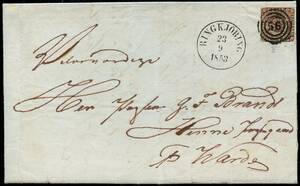 RINGKJØBING
23
9
1853
56
Velærværdige
Her Pastor G. F. Brandt
Henne Præstegaard
pr Warde